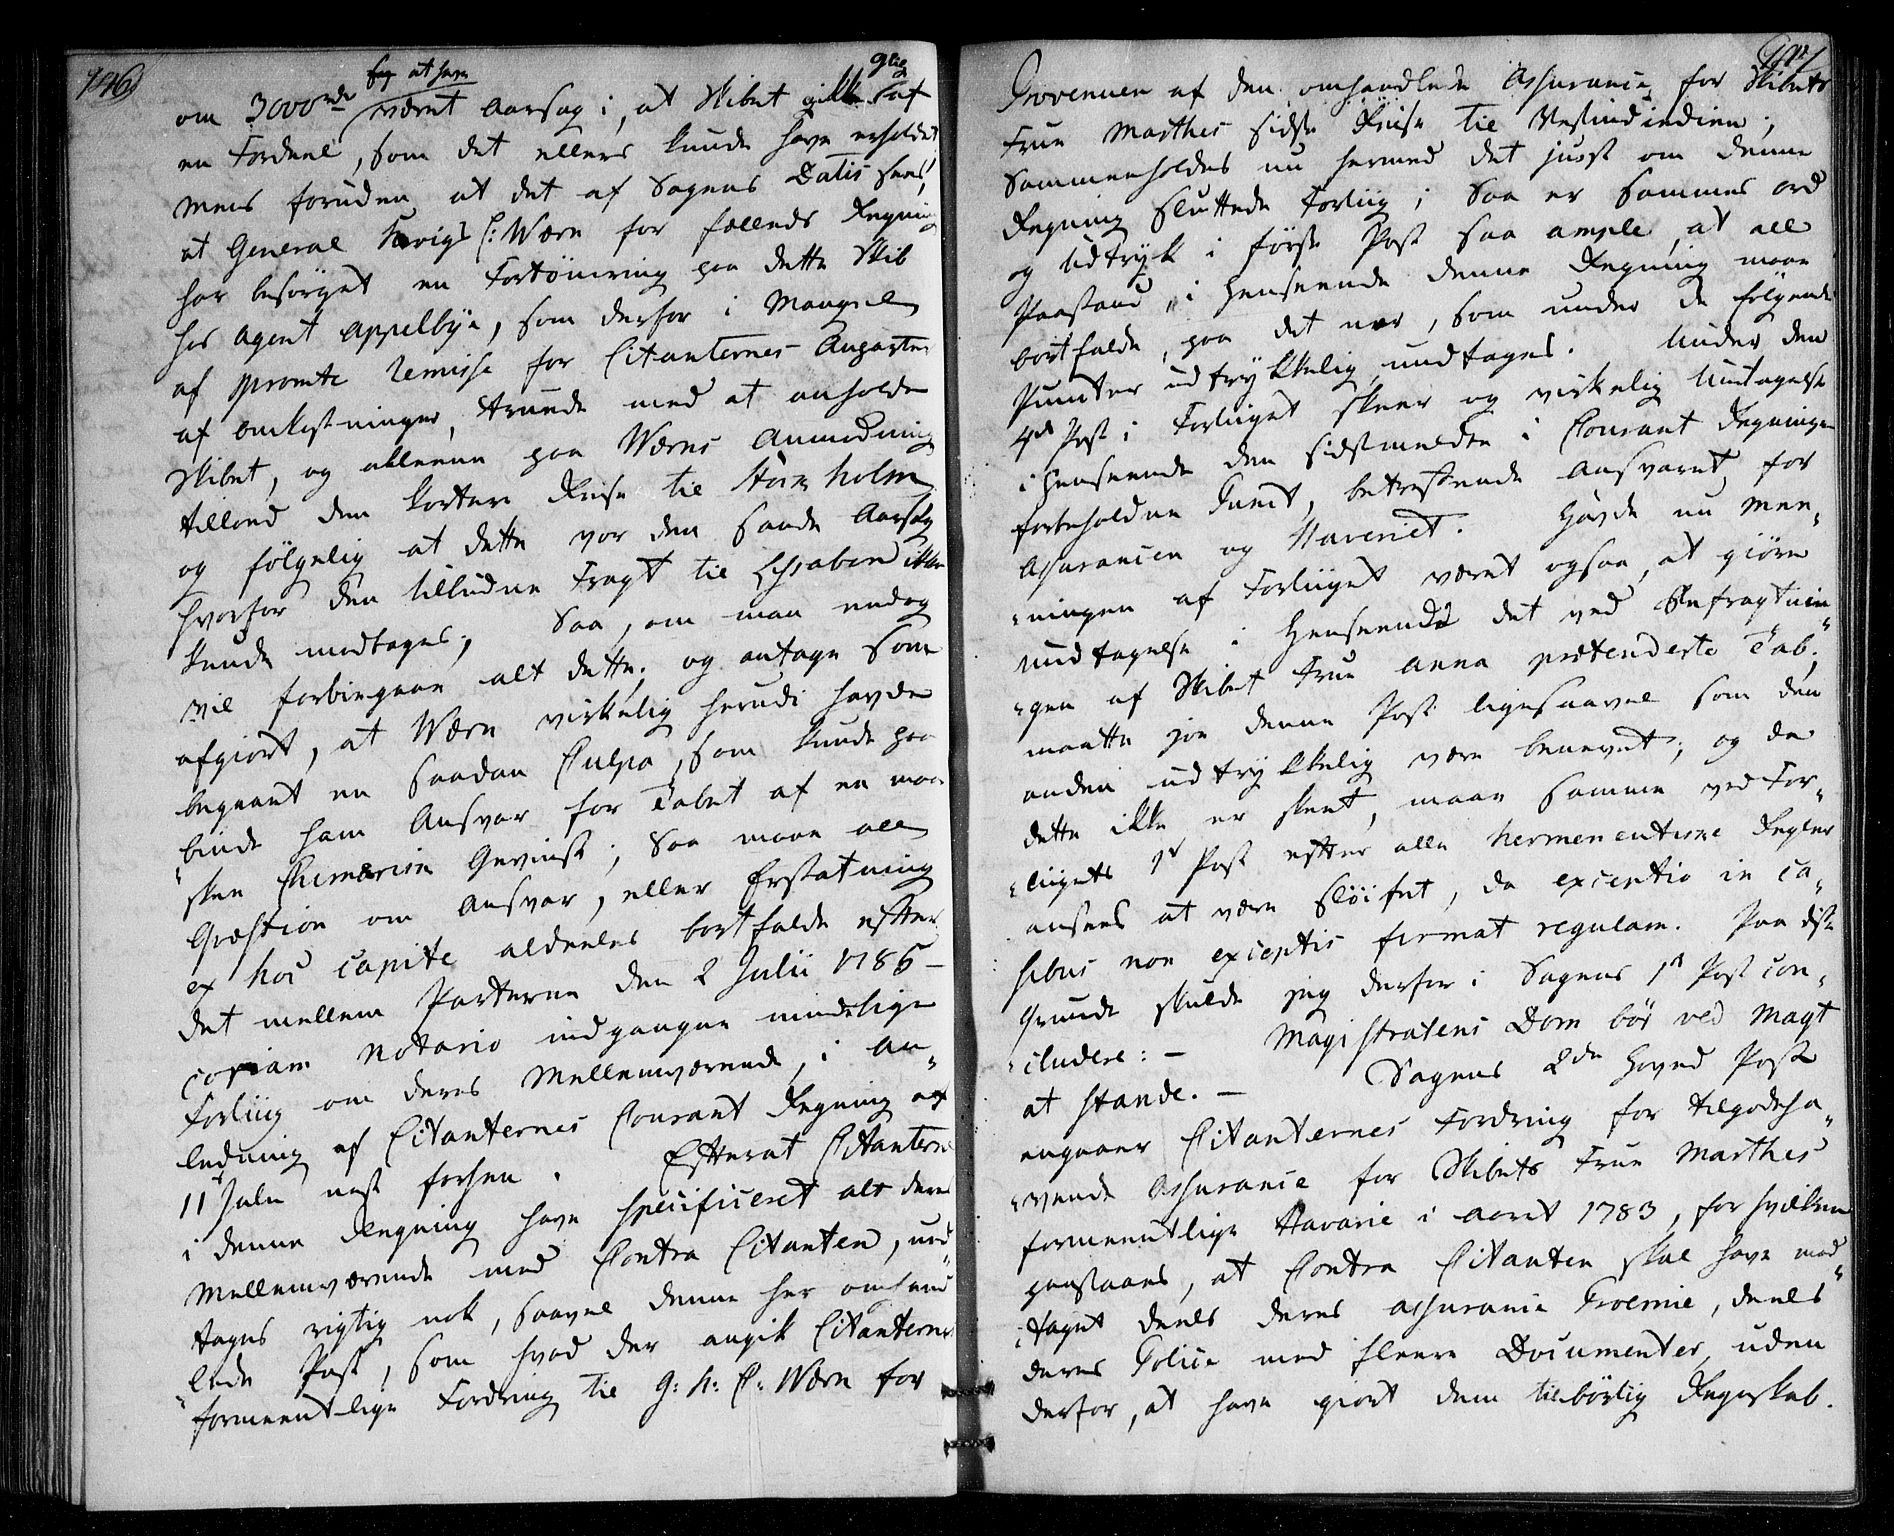 146
om 3000rdr at have været Aarsag i, at Skibet gik Glip af
en Fordeel, som det ellers kunde have erholdet
Mens foruden at det af Sagens Datis sees,
at General Krigs C: Wærn for fælleds Regning
har besørget en Fortømring paa dette Skib
hos Agent Appelbye, som derfor i Mangel
af promte remisse for Citanternes Anparter
af Omkostninger, truede med at anholde
Skibet, og alleene paa Wærns Anmodning
tillod den kortere Reise til Stokholm
og følgelig at dette var den sande Aarsag
hvorfor den tilbudne Fragt til Lissabon ikke
kunde modtages; Saa, om man endog
vil forbiegaae alt dette, og antage som
afgiort, at Wærn virkelig herudi havde
begaaet en saadan Culpa, som kunde paa
binde ham Ansvar for Tabet af en maa
"skee Chimærisk Gevinst; Saa maae all
Qvæstion om Ansvar, eller Erstatning
ex hoc capite aldeeles bortfalde efter
det mellem Parterne den 2 Julii 1786
coram Notario indgangne mindelige
Forliig om deres Mellemværende, i An-
ledning af Citanternes Courant Regning af
11 Julii nest forhen. Efterat Citanterne
i denne Regning have specificeret alt deres
Mellemværende med Contra Citanten, und-
tages rigtig nok, saavel denne her omhand
"lede Post, som hvad der angik Citanternes
formeentlige Fordring til G: K: C: Wærn for
147
Provenuen af den omhandlede Assurance for Skibets
Frue Marthes sidste Reise til Vestindindien;
Sammenholdes nu hermed det just om denne
Regning sluttede Forliig; Saa er sammes ord
og Udtryk i første Post saa ample, at all
Paastand i Henseende denne Regning maae
bortfalde, paa det nær, som under de følgende
Puncter udtrykkelig undtages. Under den
4de Post i Forliiget skeer og virkelig Undtagelse
i Henseende den sidstmeldte i Courant Regningen
forbeholdne Punct, betreffende Ansvaret for
Assurancen og Haveriet. Havde nu Mee-
"ningen af Forliiget været ogsaa, at giøre
undtagelse i Henseende det ved Befragtnin-
"gen af Skibet Frue Anna prætenderte Tab;
maatte jo denne Post ligesaavel som den
anden udtrykkelig være benævnt; og da
dette ikke er skeet, maae samme ved For-
"liigets 1te Post efter alle hermeneutiske Regler
ansees at være sløifet, da exceptio in ca-
sibus non exceptis firmat regulam. Paa disse
Grunde skulde jeg derfor i Sagens 1te Post con-
"cludere: - Magistratens Dom bør ved Magt
at stande. -
Sagens 2den Hoved Post
angaaer Citanternes Fordring for tilgodeha-
"vende Assurance for Skibets Frue Marthes
formeentlige Havarie i Aaret 1783, for hvilken
paastaaes, at Contra Citanten skal have mod-
"taget deels deres Assurance Præmie, deels
deres Police med fleere Documenter, uden
derfor, at have giort dem tilbørlig Regnskab.